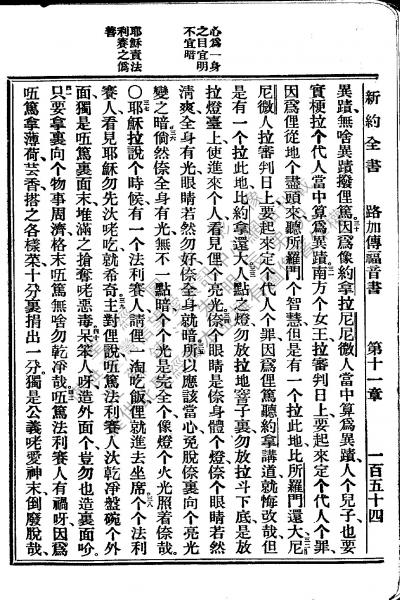 新約全書 路加傳福音書 第十一章 一百五十四
心爲一身
之目宜明
不宜暗
耶穌責法
利賽之僞
善
異蹟、無啥異蹟撥俚篤、三十因爲像約拿拉尼尼微人當中算爲異蹟、人个兒子也要
實梗拉个代人當中算爲異蹟、三一南方个女王拉審判日上、要起來定个代人个罪、
因爲俚從地个盡頭來、聽所羅門个智慧、但是有一个拉此地、比所羅門還大、三二尼
尼微人拉審判日上、要起來定个代人个罪、因爲俚篤聽約拿講道、就悔改哉、但
是有一个拉此地、比約拿還大、三三人點之燈、勿放拉地窖子裏、勿放拉斗下底、是放
拉燈臺上、使進來个人看見俚个亮光、三四倷个眼睛是倷身體个燈、倷个眼睛若然
清爽、全身有光、眼睛若然勿好、倷全身就暗、三五所以應該當心、免脫倷裏向个亮光
變之暗、三六倘然倷全身有光、無不一點暗、个个光是完全个、像燈个火光照着倷哉、
〇三七耶穌拉說个時候、有一个法利賽人、請俚一淘吃飯、俚就進去坐席、三八个个法利
賽人看見耶穌勿先汏咾吃、就希奇、三九主對俚說、㕶篤法利賽人汏乾淨盤碗个外
面、獨是㕶篤裏面末、堆滿之搶奪咾惡毒、四十呆笨人呀、造外面个、豈勿也造裏面吤、
四一只要拿裏向个物事周濟、格末㕶篤無啥勿乾淨哉、四二㕶篤法利賽人有禍呀、因爲
㕶篤拿薄荷芸香搭之各樣菜、十分裏捐出一分、獨是公義咾愛神末、倒廢脫哉、